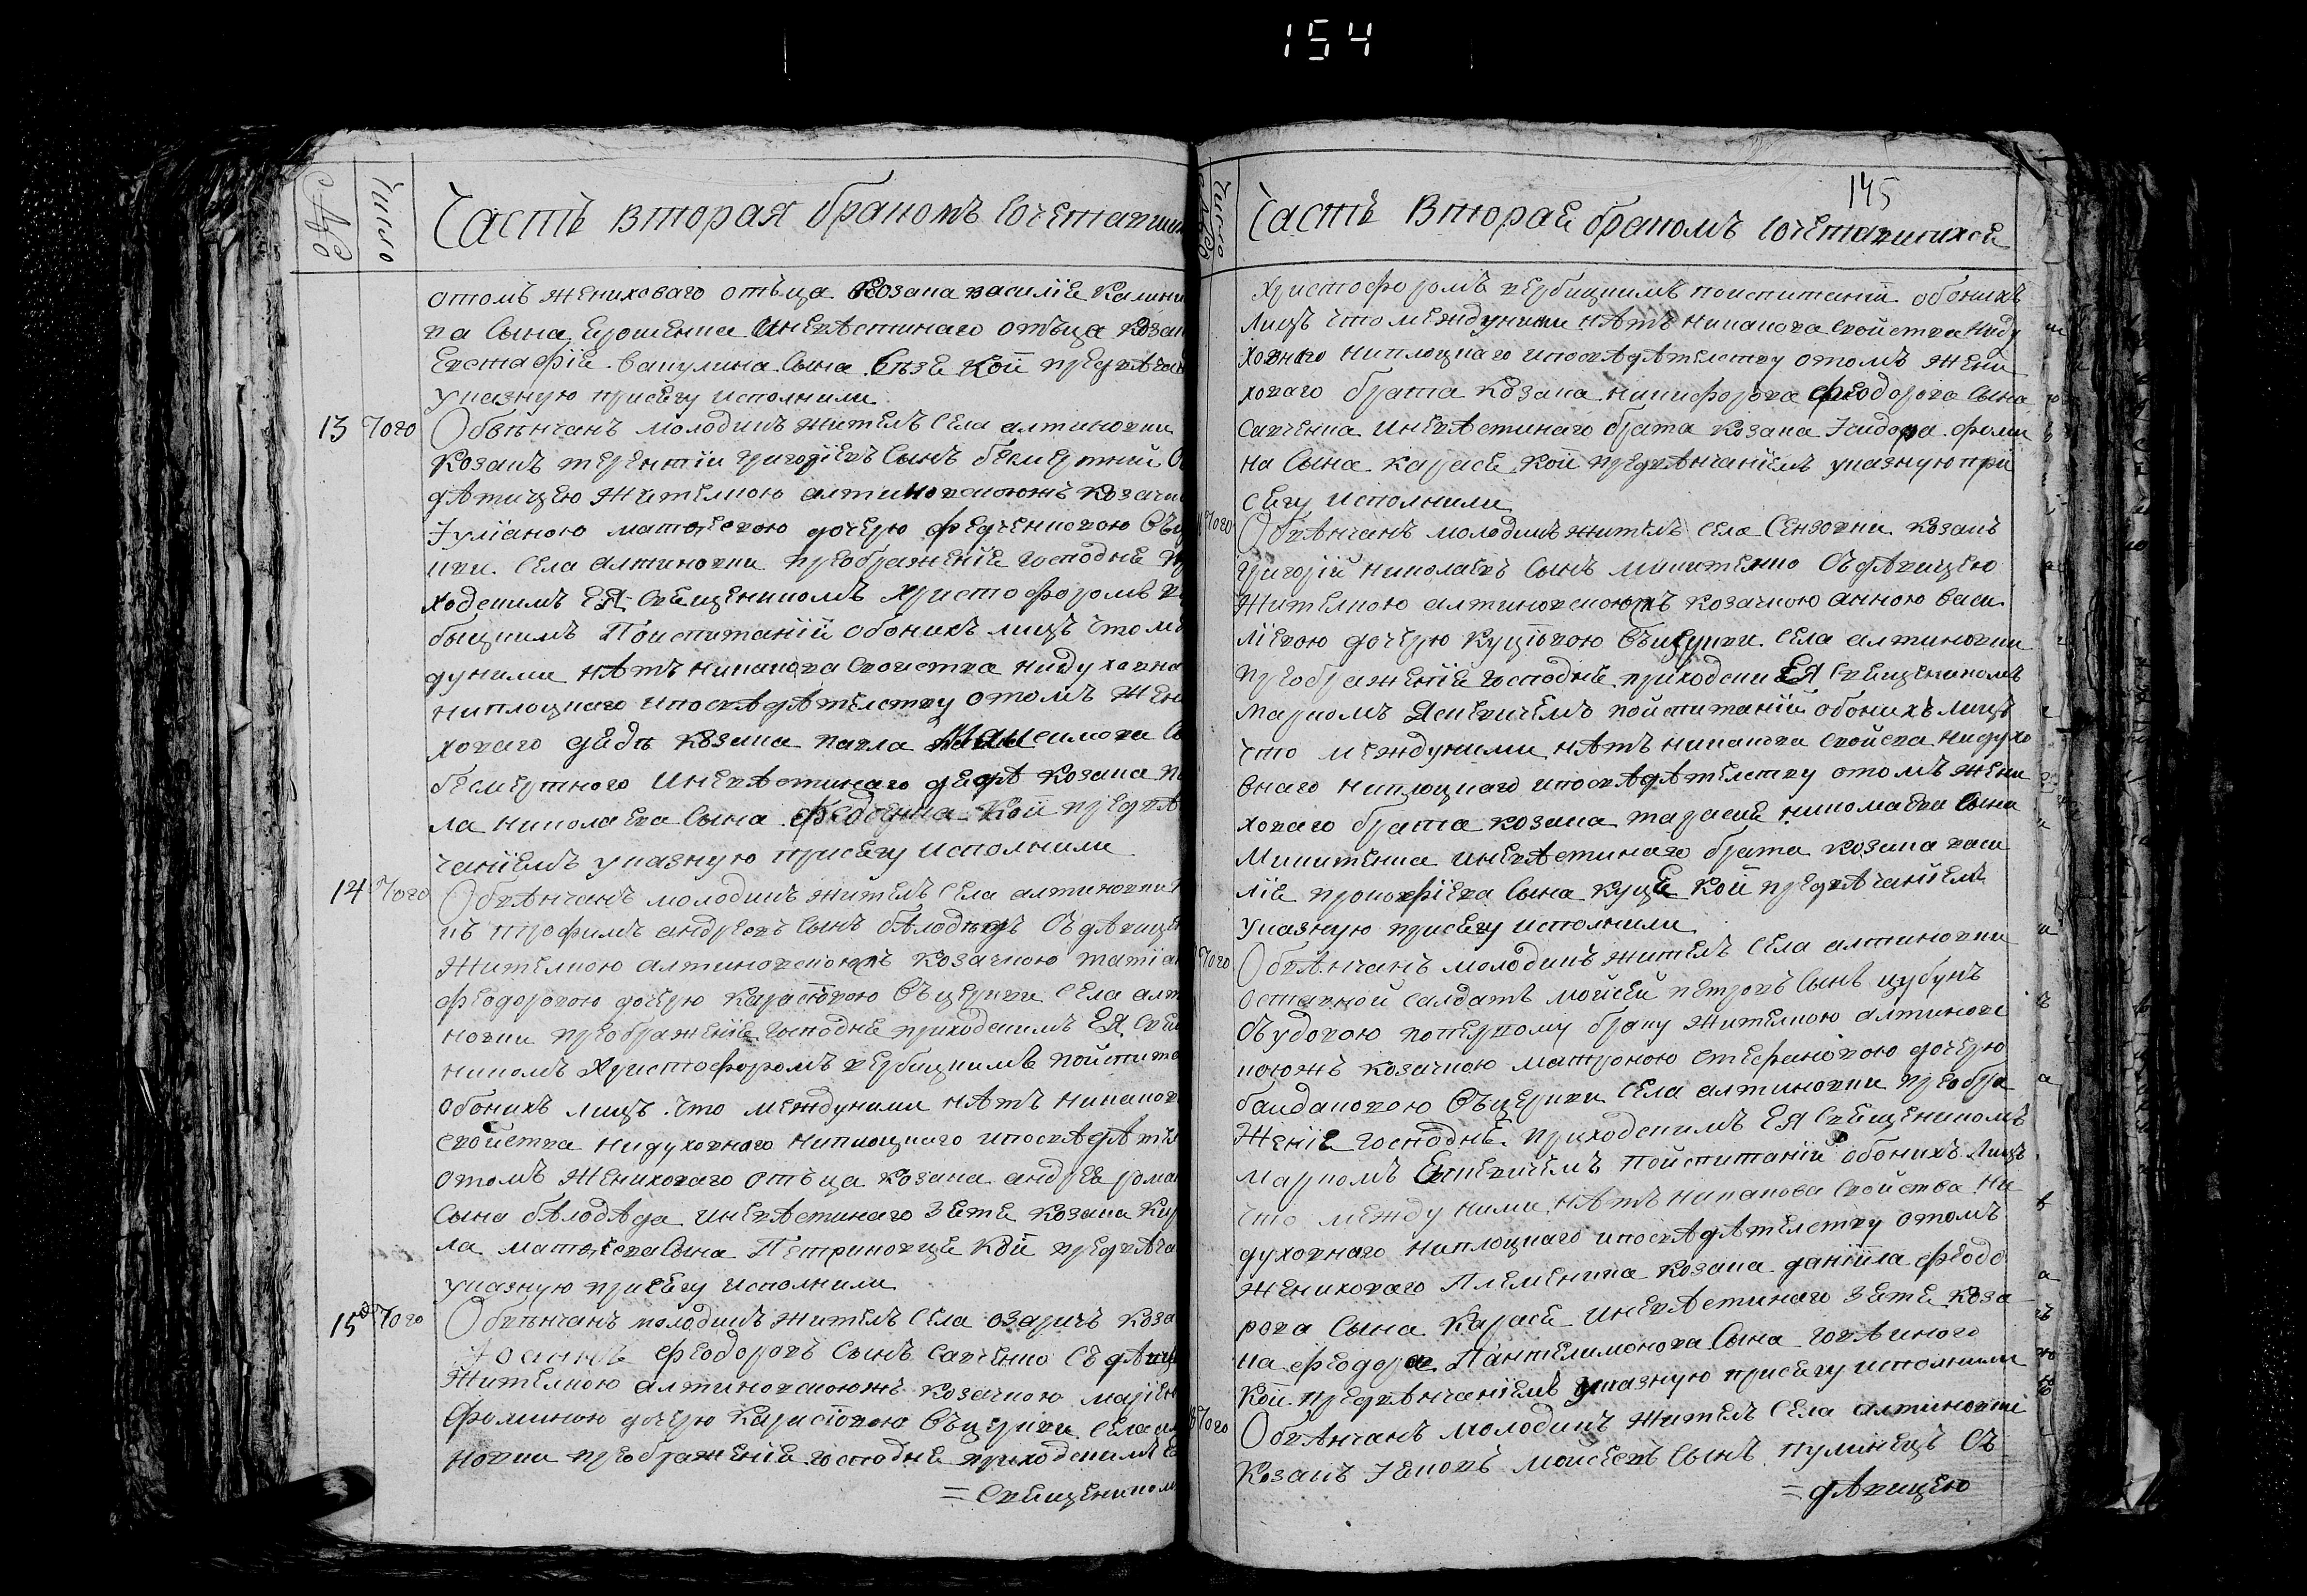 154
№
Число
Часть вторая бракомъ сочетавши
отомъ жениховаго отъца козака василія калини
ка сына ерошенка иневѣстинаго отъца козак
евстафія вакулина сына кои предвѣчан
указную присягу исполнили
13 Того Обвѣнчанъ молодикъ житель села алтиновки
козакъ терентіи григоріевъ сынъ бесмертній
дѣвицею жителкою алтиновскоюжъ козачк
Іуліаною матѳеевою дочерю федченковою Въц
ркви села алтиновки преображенія господня пр
ходскимъ ея священикомъ христофоромъ ве
бицкимъ Поиспитаніи обоихъ лицъ что меж
дуними нѣтъ никакова своиства нидуховна
ниплоцкаго ипосвѣдѣтелству отомъ жени
хаваго деда козака павла максимова с
бесмертного иневѣстинаго деда козака па
ла николаева сына федченка кои предвѣ
чаніемъ указную присягу исполнили
14 Того Обвѣнчанъ молодикъ житель села алтиновки
къ трофимъ андреевъ сынъ бѣлодедъ Съ дѣвице
жителкою алтиновскоюжъ козачкою татіан
феодоровою дочерю карасіовою Въцеркви села алт
новки преображенія господня приходскимъ ея свящ
никомъ христофоромъ вербицкимъ поиспита
обоихъ лицъ что междуними нѣтъ никаков
своиства нидуховнаго ниплоцкаго ипосвѣдѣте
отомъ жениховаго отъца козака андрея роман
сына бѣлодѣда иневѣстинаго зятя козака кир
ла матѳеева сына Петриковца кои предвѣча
указную присягу исполнили
15 Того Обвѣнчанъ молодикъ житель села озаричъ коза
Іоаннъ феодоровъ сынъ савченко съ дѣвиц
жителкою алтиновскоюжъ козачкою маріею
фоминою дочерю карасіовою Въцеркви села ал
новки преображенія господня приходскимъ ея
= священиком
145
Число
Часть вторая бракомъ сочетавшихся
христофоромъ вербицкимъ поиспитаніи обоихъ
лицъ что междуними нѣтъ никакова своиства ниду
ховного ниплоцкаго ипосвѣдѣтелству отомъ жени
ховаго брата козака никифорова феодорова сына
савченка иневѣстинаго брата козака Ісидора фоми
на сына карася кои предвѣнчаніемъ указную при
сягу исполнили
Того Обвѣнчанъ молодикъ житель села Сензовки козакъ
григорій николаевъ сынъ микитенко Съдѣвицею
жителкою алтиновскоюжъ козачкою анною васи
ліевою дочерю куціовою Въцеркви села алтиновки
преображенія господня приходски ея священикомъ
маркомъ Ясневичемъ поиспитаніи обоихъ лицъ
что междуними нѣтъ никакова своиства нидухо
внаго ниплоцкаго ипосвѣдѣтелству отомъ жени
ховаго брата козака тарасия николаева сына
микитенка иневѣстинаго брата козака васи
лія прокофіева сына куця кои предвѣчаніемъ
указную присягу исполнили
Того Обвѣнчанъ молодикъ житель села алтиновки
оставной салдатъ мойсей петровъ сынъ цубунъ
Съудовою попервому браку жителкою алтиновс
коюжъ козачкою матроною стефановою дочерю
байдаковою Въцеркви села алтиновки преобра
женія господня приходскимъ ея священикомъ
маркомъ поиспитаніи обоихъ лицъ
что между ними нѣтъ никакова своиства ни
духовнаго ниплоцкаго ипосвѣдѣтелству отомъ
жениховаго племеника козака даніила феодо
рова сына карася иневѣстинаго зятя коза
ка феодора Пантелимонова сына
кои предвѣнчаніемъ указную присягу исполнили
Того Обвѣнчанъ молодикъ житель села алтиновки
козакъ Іяковъ моисеевъ сынъ кулинецъ Съ
= дѣвицею